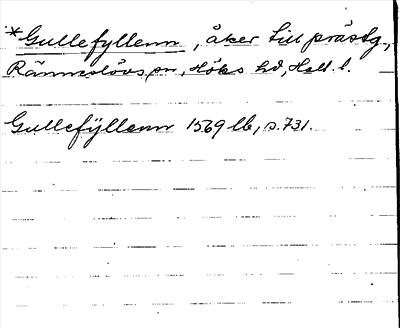 *Gullefyllenn, åker till prästg.,
Ränneslövs sn, Höks hd, Hall. l.
Gullefÿllenn 1569 lb, s. 731.